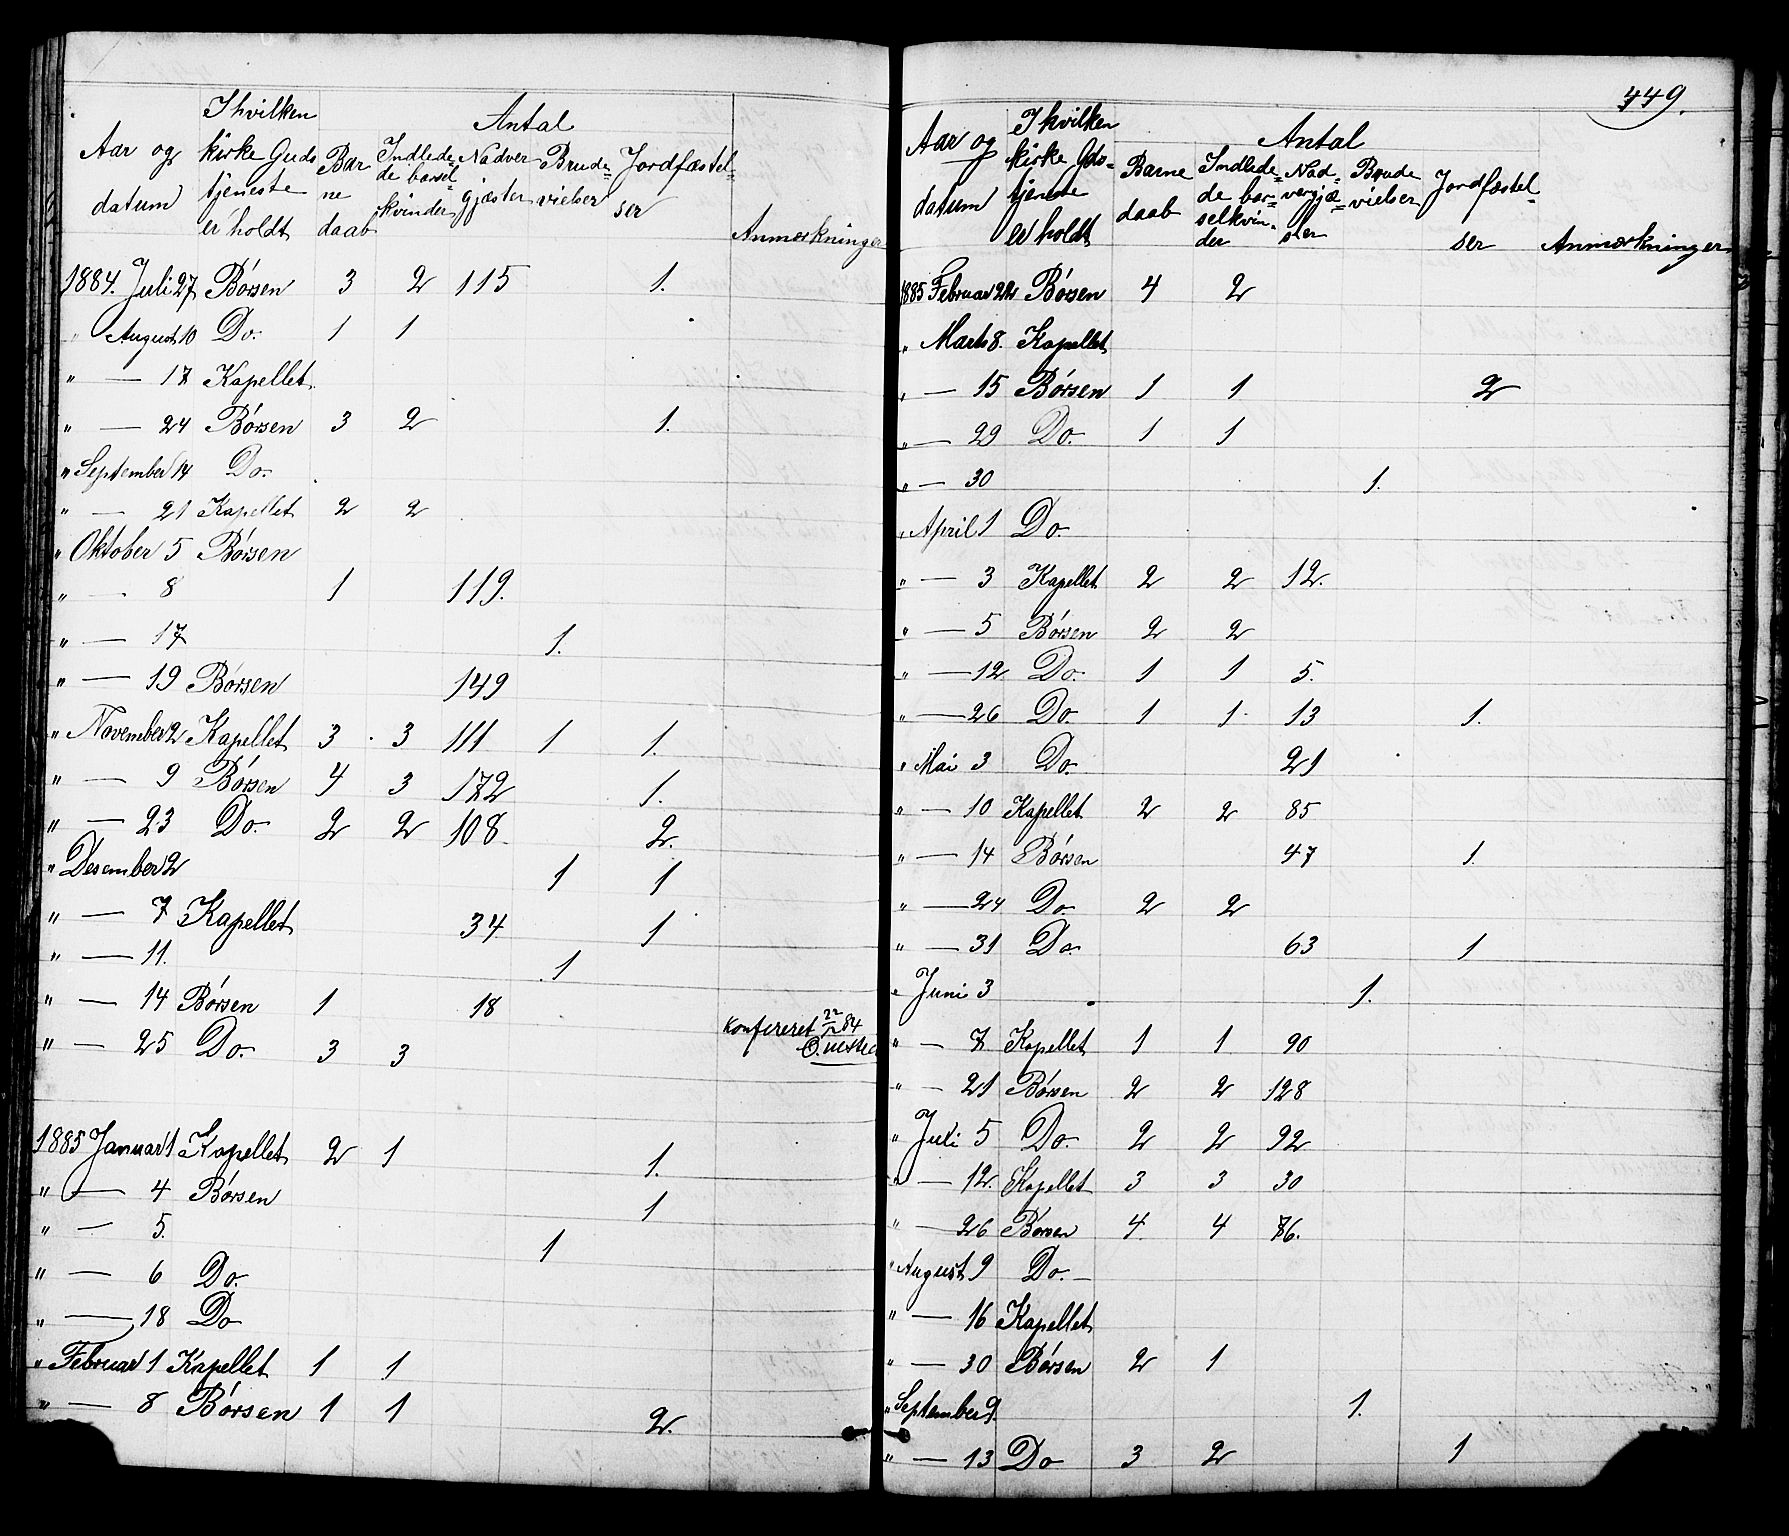 Aar og datum | I hvilken kirke Guds tjeneste er holdt | Antal | Anmærkninger
Barne daab | Indledede barselkvinder | Nadver gjæster | Brude= vielser | Jordfæstelser
1884. Juli 27 Børsen 3 2 115 1.
" August 10 Do. 1 1
" — 17 Kapellet.
" — 24 Børsen 3 2 1.
" September 14 Do.
" — 21 Kapellet 2 2
" Oktober 5 Børsen
" — 8 1 119.
" — 17 1.
" — 19 Børsen 149
" November 2 Kapellet 3 3 111 1 1.
" — 9 Børsen 4 3 172 1.
" — 23 Do. 2 2 108. 2.
" Desember 2 1 1
" — 7 Kapellet 34 1
" — 11. 1
" — 14 Børsen 1 18
" — 25 Do. 3 3 Konfereret
1885 Januar 1 Kapellet 2 1 1.
" — 4 Børsen 1
" — 5. 1
" — 6 Do.
" — 18 Do
" Februar 1 Kapellet 1 1
" — 8 Børsen 1 1 2.
449.
Aar og datum | I hvilken kirke Gds= tjeneste er holdt | Antal | Anmærkninger
Barne daab | Indlede= de bar= selkvin= der | Nad= vergjæ= ster | Brude vielser | Jordfæstel= ser
1885 Februar 22 Børsen 4 2
" Marts 8. Kapellet
" — 15 Børsen 1 1 2
" — 29 Do. 1 1
" — 30 1.
" April 1 Do.
" — 3 Kapellet 2 2 12.
" — 5 Børsen 2 2
" — 12 Do. 1 1 5.
" — 26 Do. 1 1 13 1.
" Mai 3 Do. 21
" — 10 Kapellet 2 2 85
" — 14 Børsen 47 1.
" — 24 Do. 2 2
" — 31 Do. 63 1
" Juni 3 1.
" — 7 Kapellet 1 1 90
" — 21 Børsen 2 2 128
" Juli 5 Do. 2 2 92
" — 12. Kapellet 3 3 30
" — 26 Børsen 4 4 76.
" August 9 Do. —
" — 16 Kapellet
" — 30 Børsen 2 1
" September 9. 1.
" — 13 Do 3 2 1